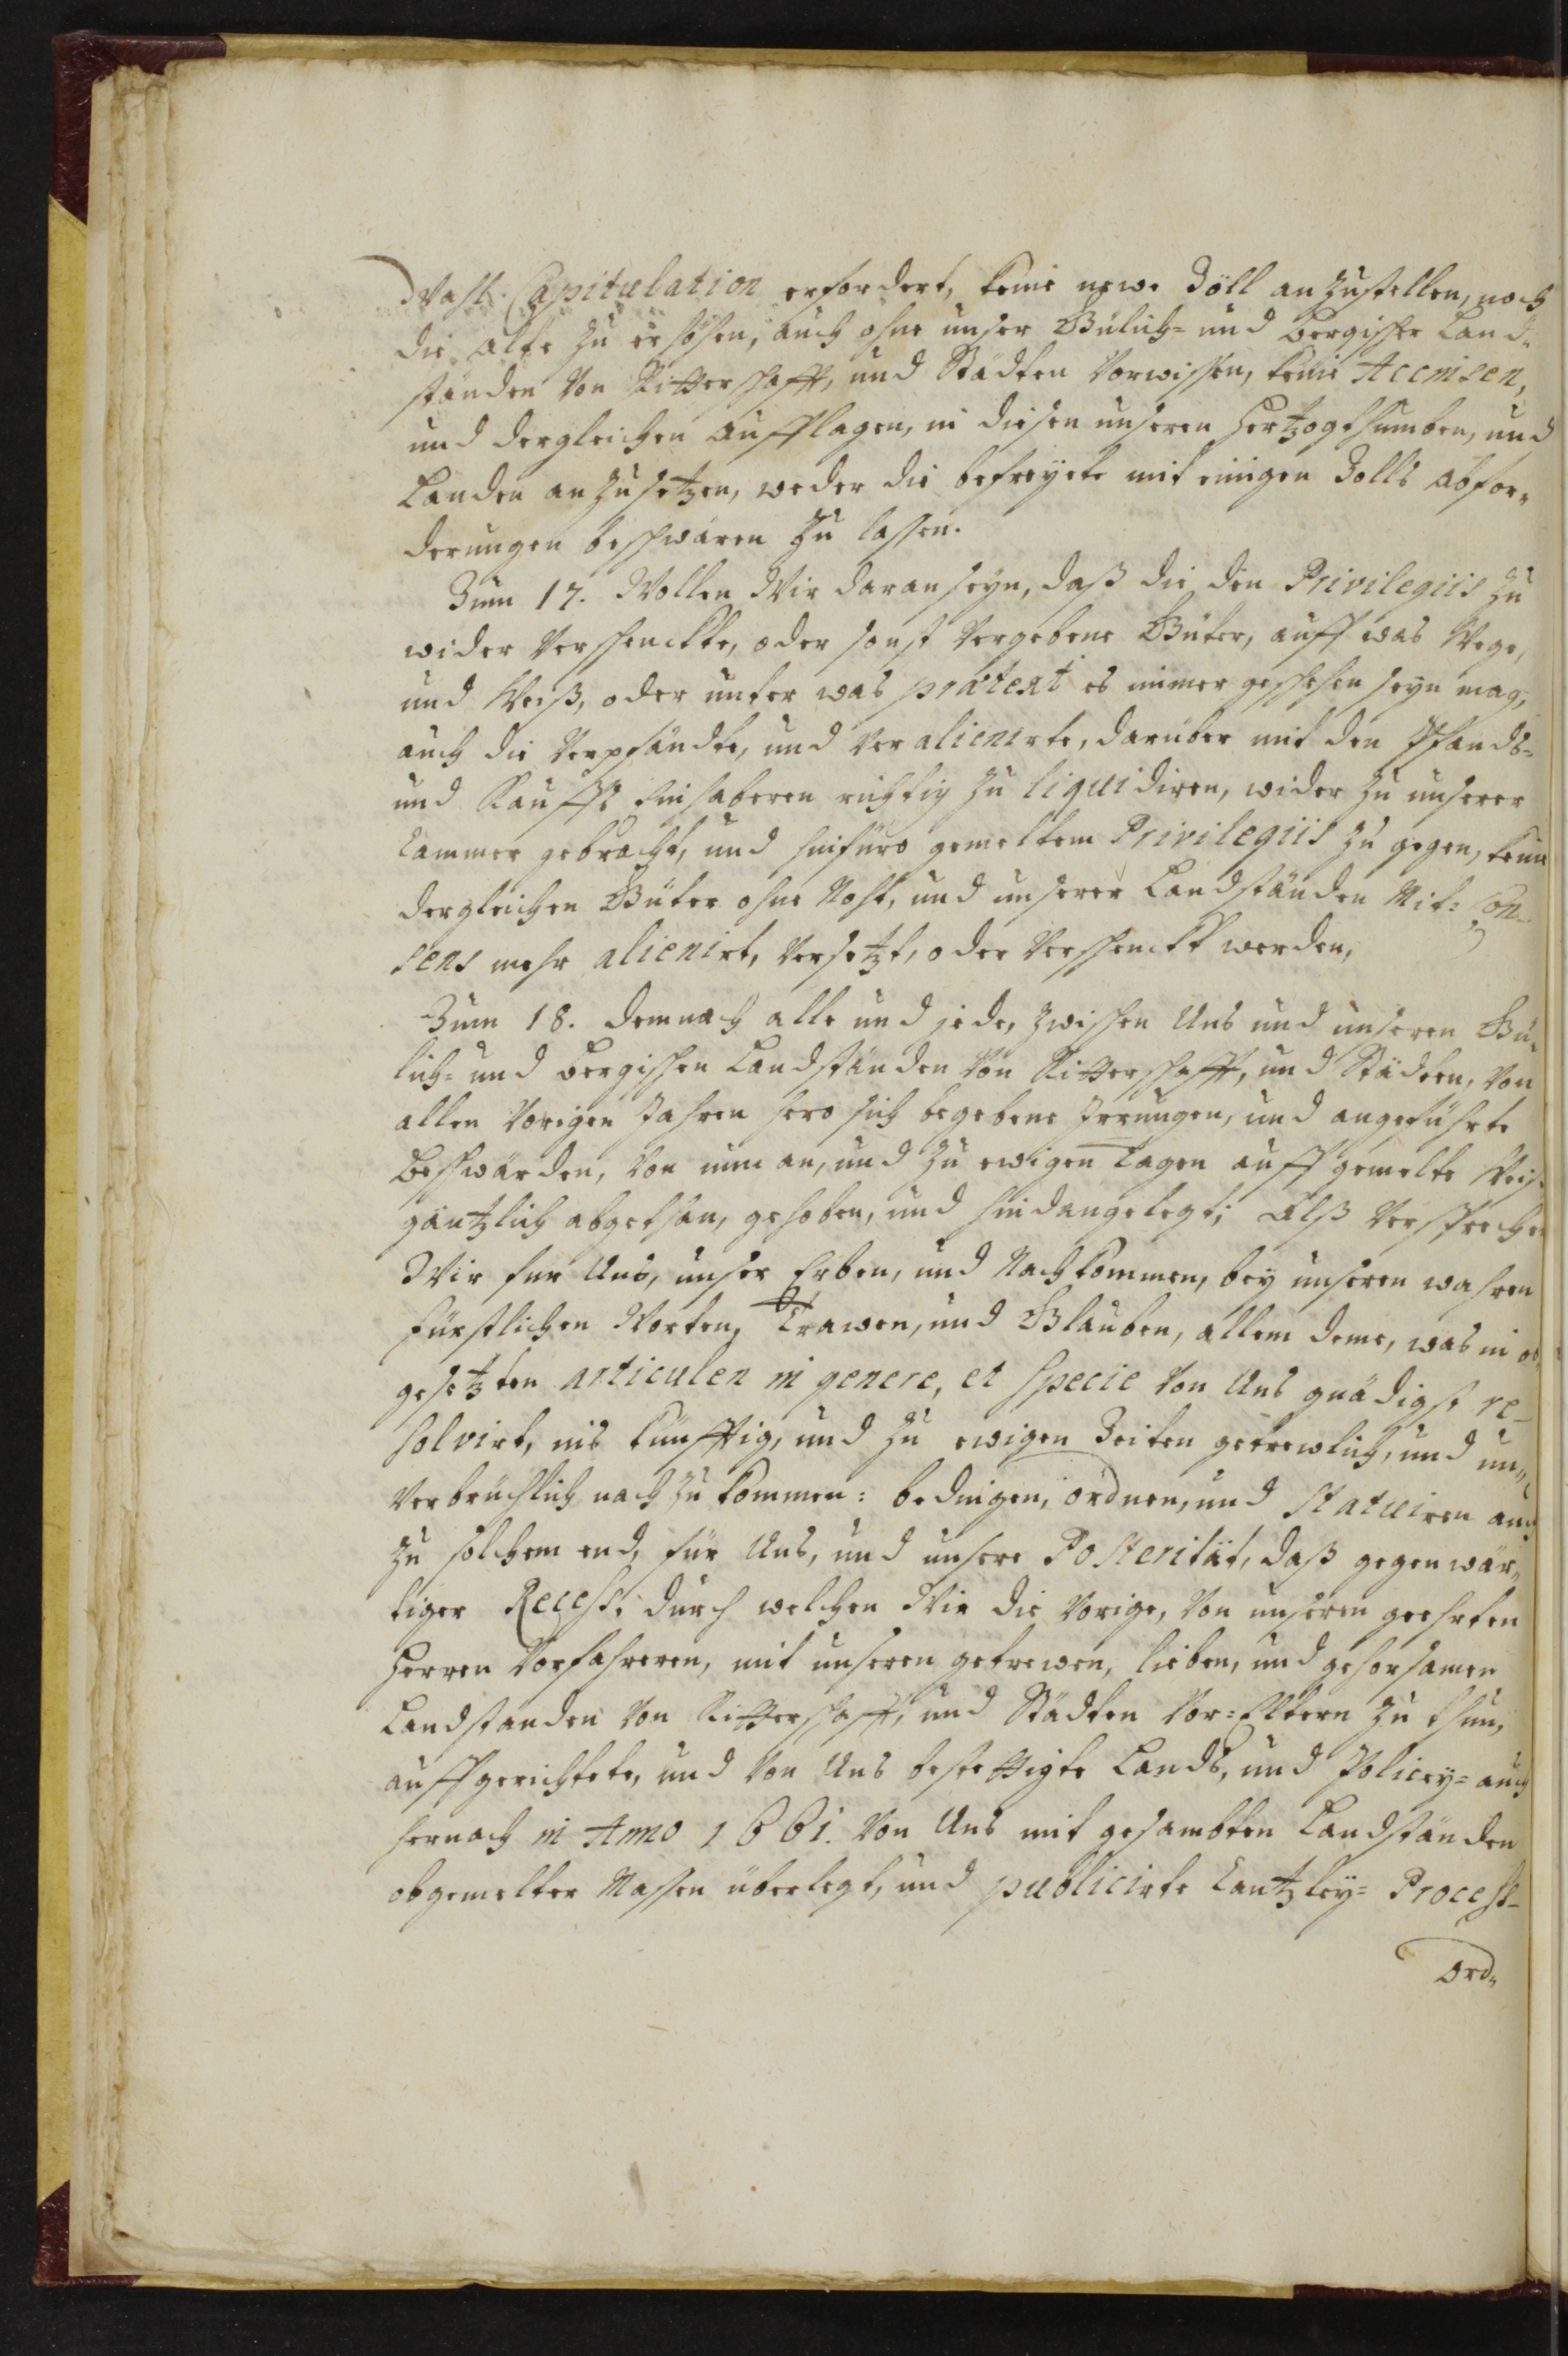 Wahl-Capitulation erfordert, keine newe Zöll anzustellen, noch
die alte zu erhöhen, auch ohne unser Gülich- und Bergische Land-
ständen von Ritterschafft, und Städten Vorwissen, keine Accinsen,
und dergleichen Aufflagen, in diesen unseren Hertzogthumben, und
Landen anzusetzen, weder die befreyete mit einigen Zolls abfor-
derungen beschwären zu lassen.
Zum 17. Wollen Wir daran seyn, daß die den Privilegiis zu
wider verschenckte, oder sonst vergebene Güter, auff was Wege,
und Weiß, oder unter was prætext es immer geschehen seyn mag,
auch die verpfändte, und veralienirte, darüber mit den Pfands-
und Kauffs Einhaberen richtig zu liquidiren, wider zu unserer
Cammer gebracht, und hinfüro gemeltem Privilegiis zu gegen, keine
dergleichen Güter ohne Noht, und unserer Landständen Mit-Con-
sens mehr alienirt, versetzt, oder verschenckt werden,
Zum 18. demnach alle und jede, zwischen Uns und unseren Gü-
lich- und Bergischen Landständen von Ritterschafft, und Städten, von
allen vorigen Jahren hero sich begebene Irrungen, und angeführte
Beschwärden, von nun an, und zu ewigen Tagen auff gemelte Weiß
gäntzlich abgethan, gehoben, und hindangelegt; Alß versprechen
Wir für Uns, unser Erben, und Nachkommen, bey unseren wahren
Fürstlichen Worten, Trawen, und Glauben, allem deme, was in ob-
gesetzten articulen in genere, et specie von Uns gnädigst re-
solvirt, ins künfftig, und zu ewigen Zeiten getrewlich, und un-
verbrüchlich nach zu kommen: bedingen, ordnen, und statuiren auch
zu solchem end, für Uns, und unsere Posterität, daß gegenwär-
tiger Recess, durch welchen Wir die vorige, von unseren geehrten
Herren Vorfahreren, mit unseren getrewen, lieben, und gehorsamen
Landstanden von Ritterschafft, und Städten Vor-Eltern zu thun,
auffgerichtete, und von Uns bestettigte Lands, und Policey- auch
hernach in Anno 1661. von Uns mit gesambten Landständen
obgemelter Massen überlegt, und publicirte Cantzley- Process-
Ord-